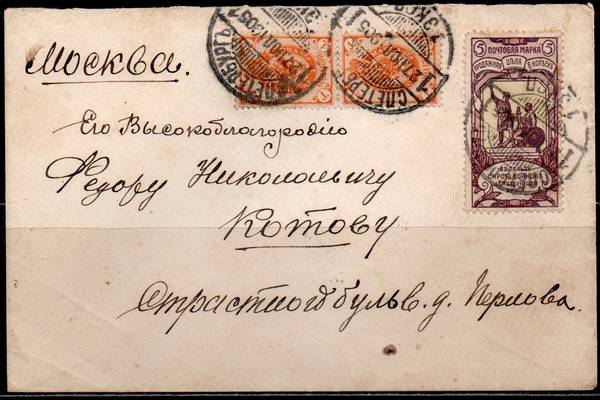 Москва.
Его Высокоблагородiю
Федору Николаевичу
Котову
Страстной бульв. д. Перлова.
5 ПОЧТОВАЯ МАРКА 5
ПРОДАЖНАЯ ЦѢНА 6 КОПѢЕКЪ
ВЪ ПОЛЬЗУ
СИРОТЪ ВОИНОВЪ
5 5
С ПЕТЕРБУРГЪ